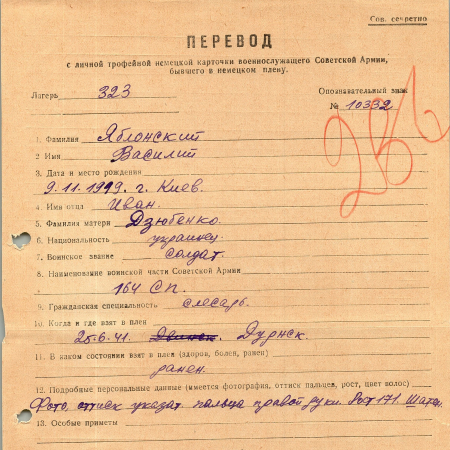 Сов. секретно
ПЕРЕВОД
с личной трофейной немецкой карточки военнослужащего Советской Армии,
бывшего в немецком плену.
Лагерь 323
Опознавательный знак
№ 10332
1. Фамилия Яблонский
2 Имя Василий
3. Дата и место рождения
9.11.1919. г. Киев.
4. Имя отца Иван.
5. Фамилия матери Дзюбенко.
6. Национальность украинец
7. Воинское звание солдат.
8. Наименование воинской части Советской Армии
164 СП.
9. Гражданская специальность слесарь.
10. Когда и где взят в плен
25.6.41. Двинск. Дурнск.
11. В каком состоянии взят в плен (здоров, болен, ранен)
ранен.
12. Подробные персональные данные (имеется фотография, оттиск пальцев, рост, цвет волос)
Фото, оттиск указат. пальца правой руки. Рост 171. Шатен.
13. Особые приметы